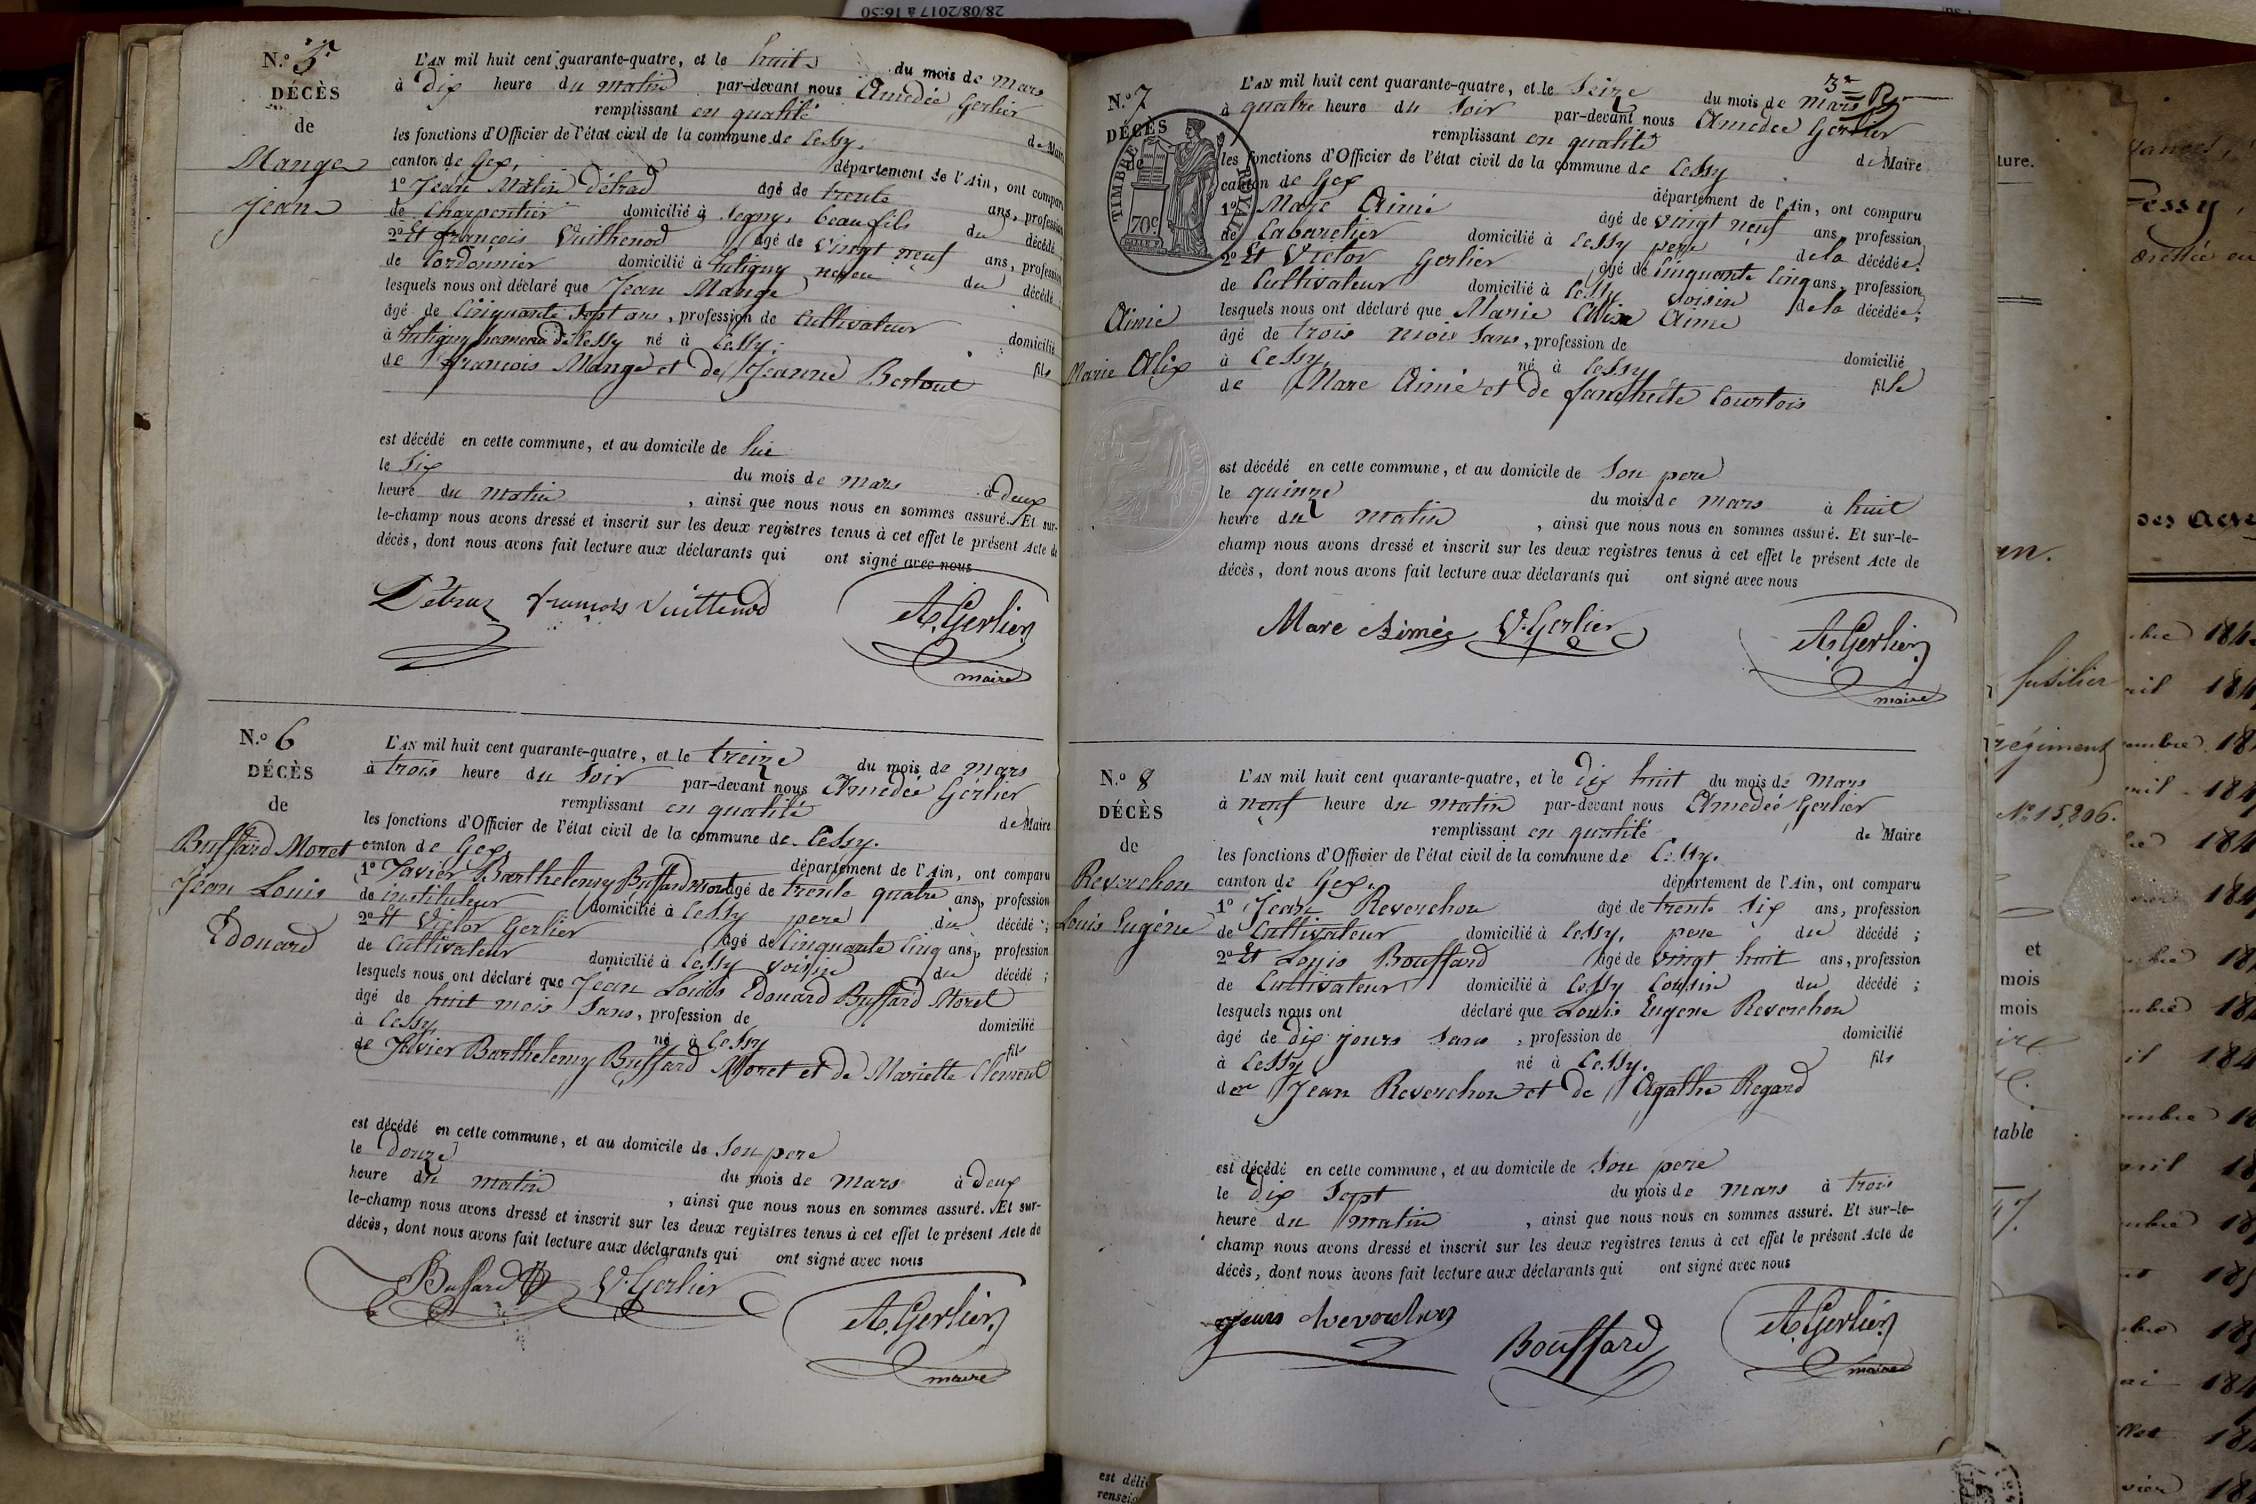 28/08/2017 à 16:50
N.° 5
DÉCÈS
de
Mange
Jean
L'AN mil huit cent quarante-quatre, et le huit du mois de mars
à dix heure du matin par-devant nous Amedée Gerlier
remplissant en qualité de Maire
les fonctions d'Officier de l'état civil de la commune de Cessy.
canton de Gex, département de l'Ain, ont comparu
1° Jean Matin Détraz âgé de trente ans, profession
de Charpentier domicilié à Segny, beau fils du décédé
2° Et françois Vuillenod âgé de vingt neuf ans, profession
de Cordonnier domicilié à neveu du décédé
lesquels nous ont déclaré que Jean Mange
âgé de Cinquante Sept ans, profession de Cultivateur domicilié
à hameau de Cessy né à Cessy. fils
de françois Mange et de Jeanne
est décédé en cette commune, et au domicile de lui
le Six du mois de mars à deux
heure du matin, ainsi que nous nous en sommes assuré. Et sur-
le-champ nous avons dressé et inscrit sur les deux registres tenus à cet effet le présent Acte de
décès, dont nous avons fait lecture aux déclarants qui ont signé avec nous
Détraz françois Vuillenod A. Gerlier
maire
N.° 6
DÉCÈS
de
Buffard Moret
Jean Louis
Edouard
L'AN mil huit cent quarante-quatre, et le treize du mois de mars
à trois heure du Soir par-devant nous Amedée Gerlier
remplissant en qualité de Maire
les fonctions d'Officier de l'état civil de la commune de Cessy.
canton de Gex, département de l'Ain, ont comparu
1° Javier Barthelemy Buffard moret âgé de trente quatre ans, profession
de instituteur domicilié à Cessy pere du décédé ;
2° Et Victor Gerlier âgé de Cinquante Cinq ans, profession
de Cultivateur domicilié à Cessy voisin du décédé ;
lesquels nous ont déclaré que Jean Louis Edouard Buffard Moret
âgé de huit mois Sans, profession de domicilié
à Cessy né à Cessy fils
de Javier Barthelemy Buffard Moret et de Mariette Clement
est décédé en cette commune, et au domicile de Son pere
le douze du mois de mars à deux
heure du matin, ainsi que nous nous en sommes assuré. Et sur-
le-champ nous avons dressé et inscrit sur les deux registres tenus à cet effet le présent Acte de
décès, dont nous avons fait lecture aux déclarants qui ont signé avec nous
Buffard V. Gerlier A. Gerlier
maire
3e
N.° 7
DÉCÈS
de
TIMBRE ROYAL
70c
Aimé
Marie Alix
L'AN mil huit cent quarante-quatre, et le Seize du mois de mars
à quatre heure du Soir par-devant nous Amedée Gerlier
remplissant en qualité de Maire
les fonctions d'Officier de l'état civil de la commune de Cessy
canton de Gex département de l'Ain, ont comparu
1° Marc Aimé âgé de vingt neuf ans, profession
de Cabaretier domicilié à Cessy pere de la décédée ;
2° Et Victor Gerlier âgé de Cinquante Cinq ans, profession
de Cultivateur domicilié à Cessy voisin de la décédée ;
lesquels nous ont déclaré que Marie Alix Aimé
âgé de trois mois Sans, profession de domicilié
à Cessy né à Cessy fille
de Marc Aimé et de Courtois
est décédé en cette commune, et au domicile de Son pere
le quinze du mois de mars à huit
heure du matin, ainsi que nous nous en sommes assuré. Et sur-le-
champ nous avons dressé et inscrit sur les deux registres tenus à cet effet le présent Acte de
décès, dont nous avons fait lecture aux déclarants qui ont signé avec nous
Marc Aimé V. Gerlier A. Gerlier
maire
N.° 8
DÉCÈS
de
Reverchon
Louis Eugéne
L'AN mil huit cent quarante-quatre, et le dix huit du mois de mars
à neuf heure du matin par-devant nous Amedée Gerlier
remplissant en qualité de Maire
les fonctions d'Officier de l'état civil de la commune de Cessy.
canton de Gex. département de l'Ain, ont comparu
1° Jean Reverchon âgé de trente Six ans, profession
de Cultivateur domicilié à Cessy, pere du décédé ;
2° Et Louis Bouffard âgé de vingt huit ans, profession
de Cultivateur domicilié à Cessy Cousin du décédé ;
lesquels nous ont déclaré que Louis Eugene Reverchon
âgé de dix jours Sans, profession de domicilié
à Cessy né à Cessy. fils
de Jean Reverchon et de Agathe Regard
est décédé en cette commune, et au domicile de Son pere
le dix Sept du mois de mars à trois
heure du matin, ainsi que nous nous en sommes assuré. Et sur-le-
champ nous avons dressé et inscrit sur les deux registres tenus à cet effet le présent Acte de
décès, dont nous avons fait lecture aux déclarants qui ont signé avec nous
Bouffard A. Gerlier
maire
fusilier
régiment
N° 15,206.
et
mois
mois
table